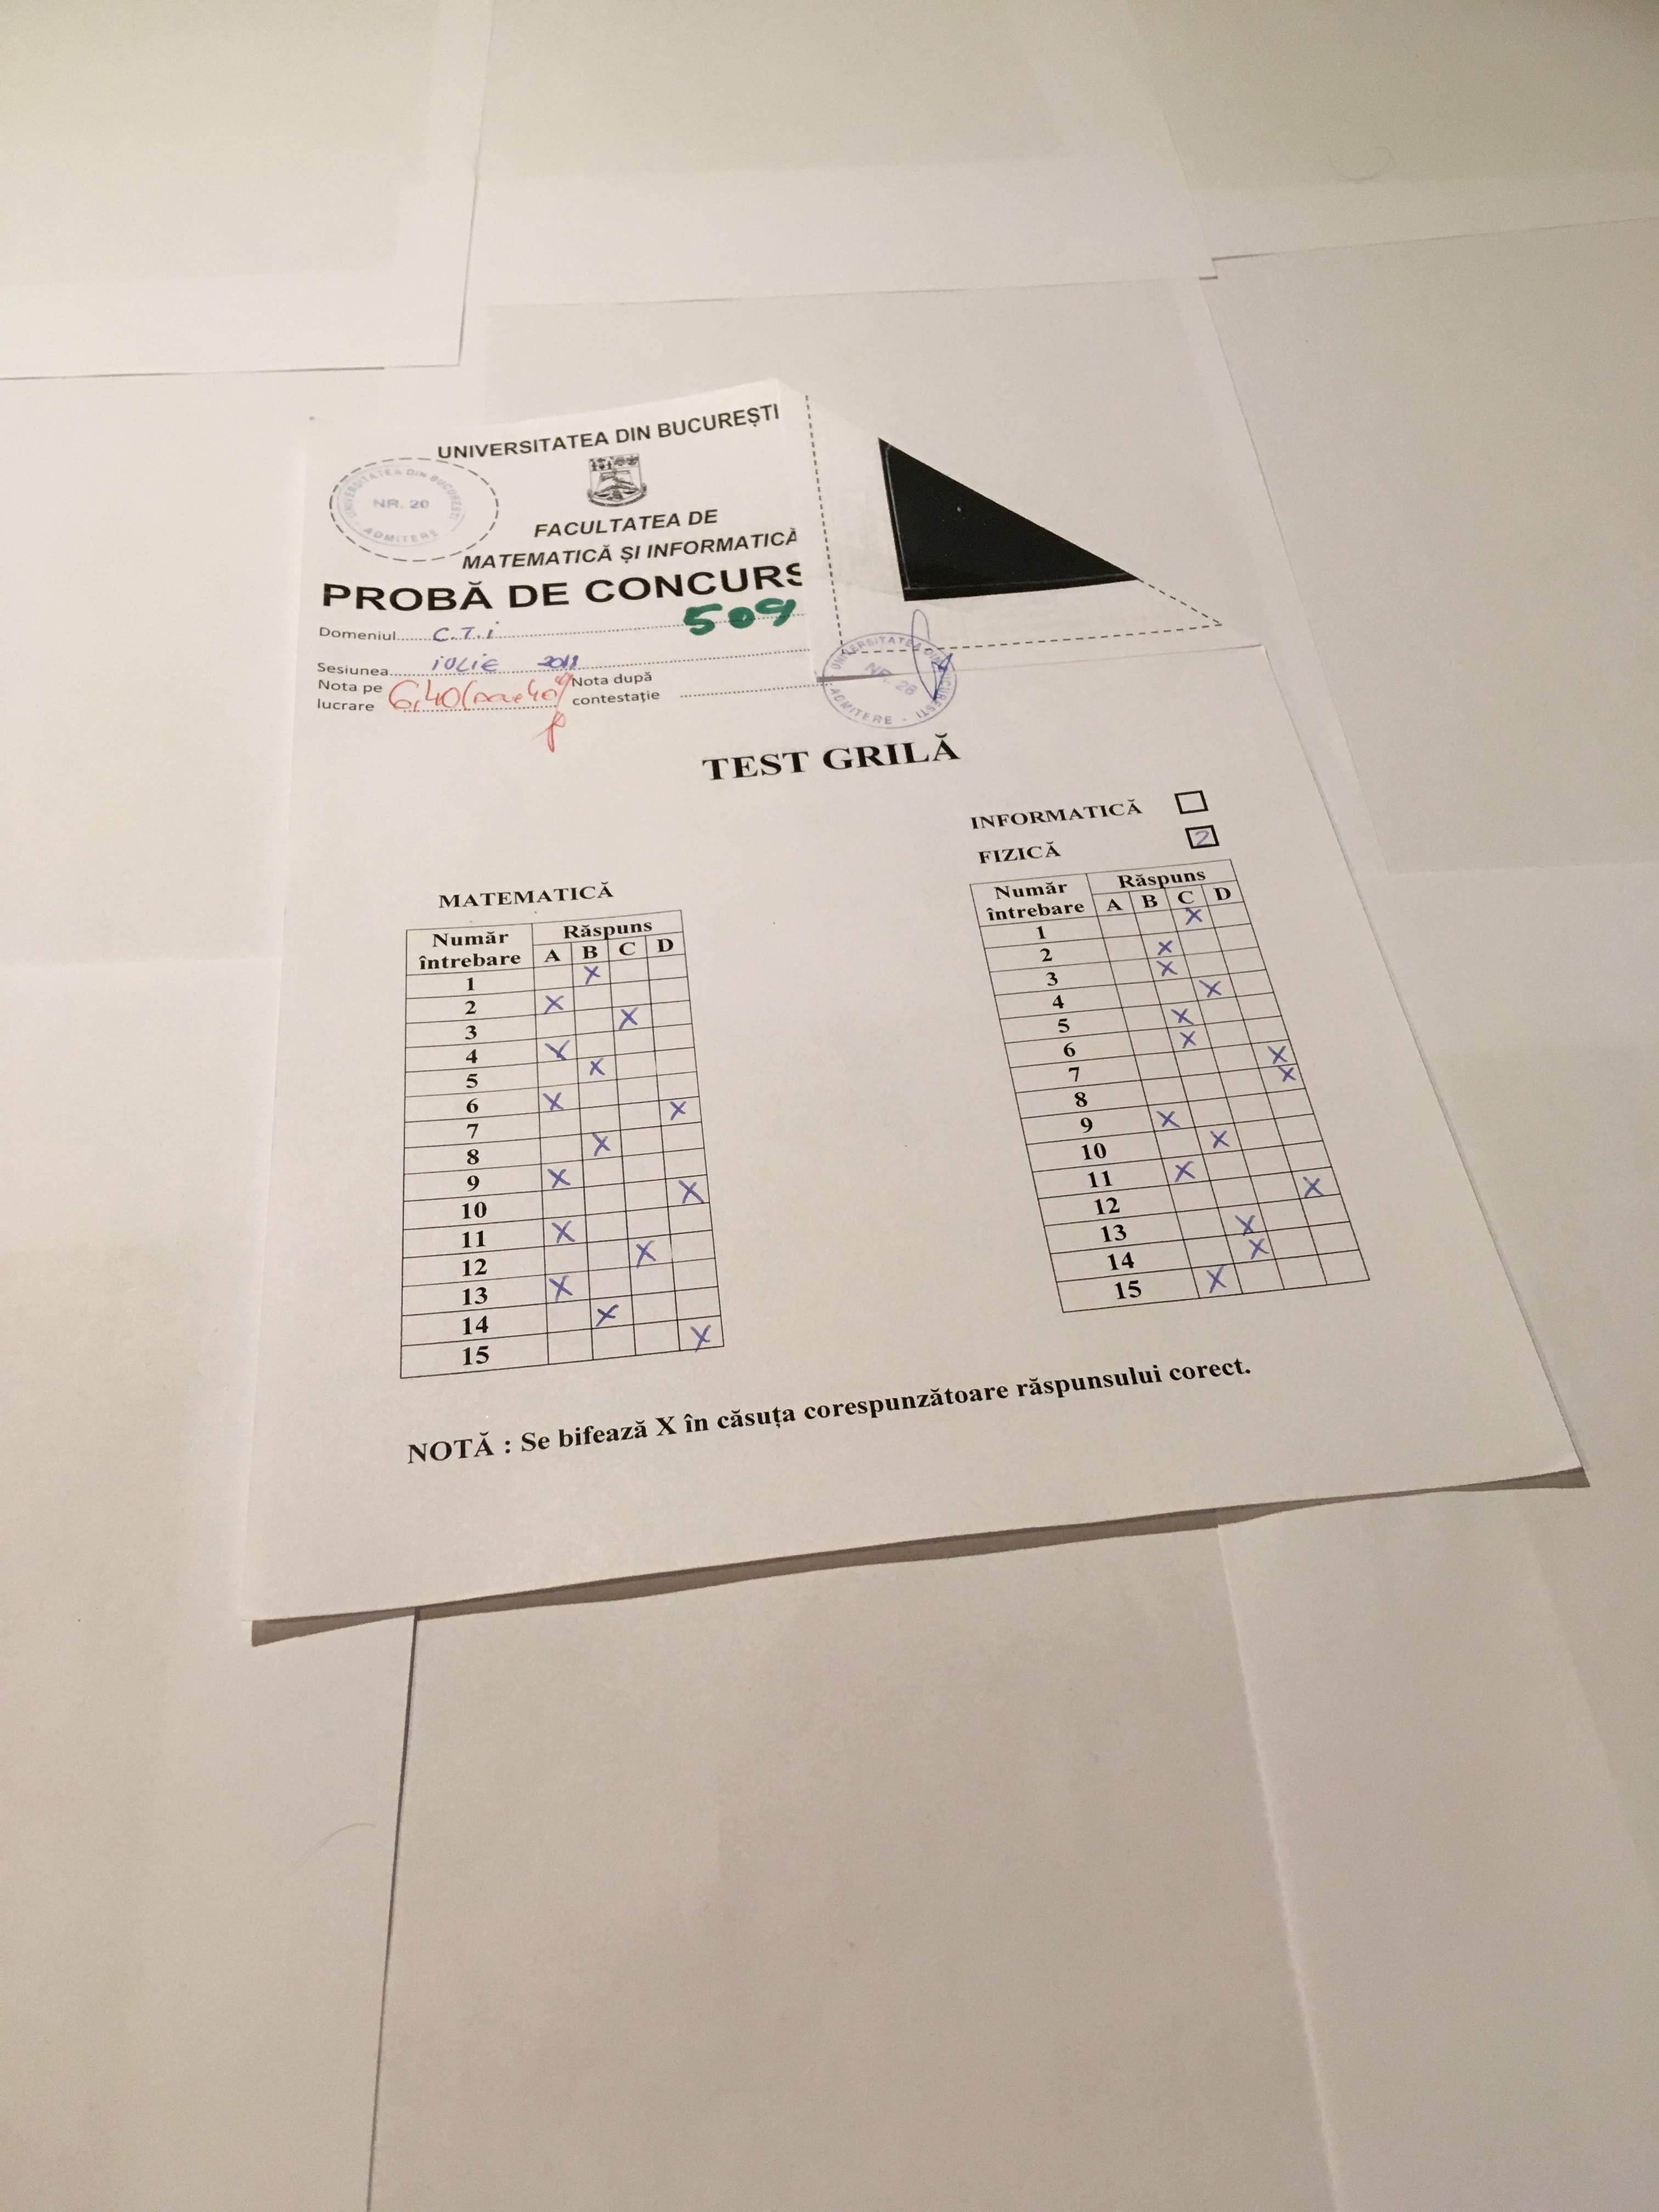 UNIVERSITATEA DIN BUCUREȘTI
UNIVERSITATEA DIN BUCUREȘTI
NR. 20
ADMITERE
FACULTATEA DE
MATEMATICĂ ȘI INFORMATICĂ
PROBĂ DE CONCURS
Domeniul C.T.i
509
Sesiunea iulie 2018
Nota pe
lucrare 6,40
Nota după
contestație
UNIVERSITATEA DIN BUCUREȘTI
NR. 28
ADMITERE
TEST GRILĂ
INFORMATICĂ
FIZICĂ 2
MATEMATICĂ
Număr
întrebare
Răspuns
A B C D
1 X
2 X
3 X
4 X
5 X
6 X
7 X
8 X
9 X
10 X
11 X
12 X
13 X
14 X
15 X
Număr
întrebare
Răspuns
A B C D
1 X
2 X
3 X
4 X
5 X
6 X
7 X
8 X
9 X
10 X
11 X
12 X
13 X
14 X
15 X
NOTĂ : Se bifează X în căsuța corespunzătoare răspunsului corect.